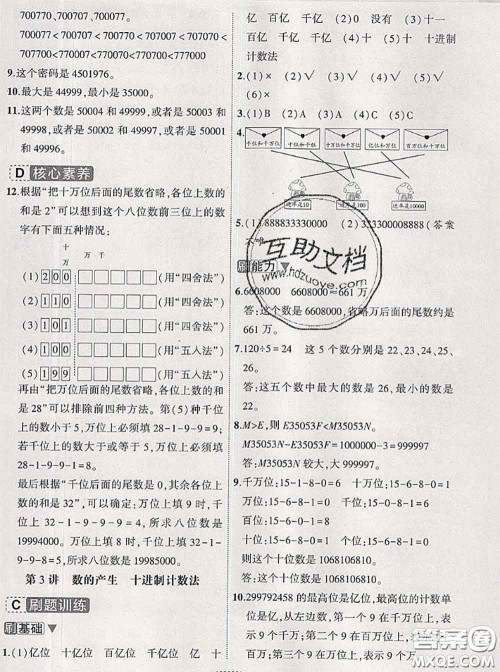 700770、707007、707700、
700077<700707<700770<707007<707070
<707700<770007<770070<770700<777000
9.这个密码是4501976。
10.最大是44999,最小是35000。
11.这两个数是50004和49999,或者是50003和
49998,或者是50002和49997,或者是50001
和49996,或者是50000和49995。
D 核心素养
12.根据“把十万位后面的尾数省略,各位上数的
和是2”可以想到这个八位数前三位上的数
字有下面五种情况:
十
万 万 千
(1)200(用“四舍法”)
(2)110(用“四舍法”)
(3)101(用“四舍法”)
(4)109(用“五入法”)
(5)199(用“五入法”)
再由“把万位后面的尾数省略,各位上数的
和是28”可以排除前四种方法。第(5)种千位
上的数小于5,万位上必须填28-1-9-9=9;
若千位上的数大于或等于5,万位上必须填
28-1-9-9-1=8。
最后根据“千位上的数是0,其余各位上数的
和是32”,可以求出:万位上填9时,千位
上32-1-9-9-9=4,所求八位数是
19994000。万位上填8时,千位上32-1-
9-9-8=5,所求八位数是19985000。
第3讲 数的产生 十进制计数法
C 刷题训练
刷基础
1.(1)亿位 十亿位 百亿位 千亿位 亿 十
亿 百亿 千亿 (2)0 没有 (3)十一
亿 百亿 千亿 (4)十 (5)十 十进制
计数法
2.(1)× (2)√ (3)√ (4)√ (5)√
(6)×
3.(1)B (2)A (3)C (4)C
4.
千位和十位 十位和个位 千位和百位 亿位和千万位 百万位和十万位
进率是10 进率是100 进率是1000
5.(1)888833330000 (2)333300008888(答案
不唯一)
刷能力
6.6608000 6608000≈661万
答:这个数是6608000,省略万后尾数约是
661万。
7.120÷5=24 这5个数分别是22、23、24、25、
26。
答:这五个数中最大的数是26,最小的数
是22。
8.M>E,则M35053N>E35053F。
M35053N-E35053F=1000000-3=999997
答:M35053N较大,大999997。
9.千万位:15-6-8-1=0 十万位:15-6-8-1=0
万位:15-6-8-1=0 千位:15-0-8-1=6
百位:15-6-8-0=1 十位:15-6-8-1=0
个位:15-6-8-1=0
则这个十位数是1068106810。
答:这个十位数是1068106810。
10.299792458的最高位是亿位,最高位的计数单
位是亿,从左边数,第一个9在千万位上,表
示9个千万,第二个9在百万位上,表示9个
互助文档
www.hdzuoye.com
答案圈
MXQE.COM